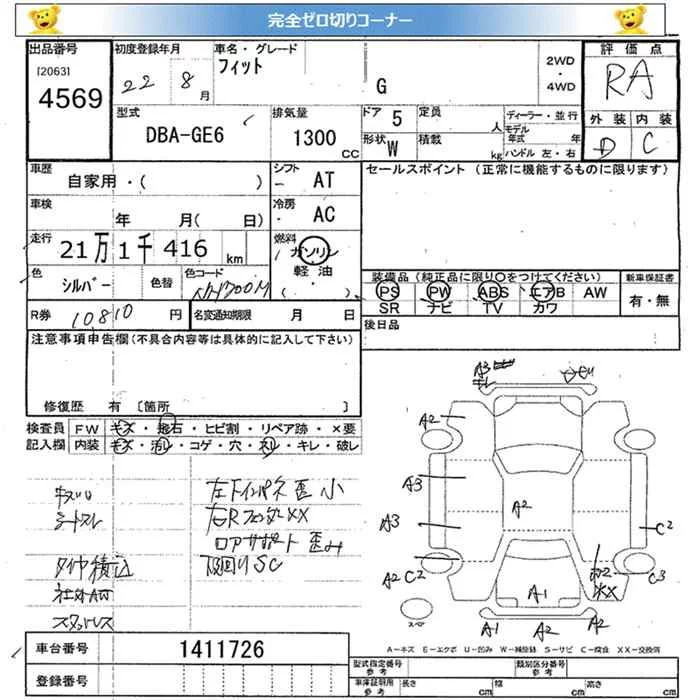 完全ゼロ切りコーナー
出品番号
[2063]
4569
初度登録年月
22 8月
車名・グレード
フィット
G
2WD
・
4WD
評価点
RA
外装 内装
D C
型式
DBA-GE6
排気量
1300 CC
ドア 5
形状 W
定員 人
積載 kg
ディーラー・並行
モデル年式 年
ハンドル 左・右
車歴
自家用・( )
シフト
AT
セールスポイント (正常に機能するものに限ります)
車検
年 月( 日)
冷房
AC
走行
21万1千416km
燃料
ガソリン
軽油
( ・ )
色
シルバー
色替
色コード
NH700M
装備品(純正品に限り○をつけてください)
PS PW ABS エアB AW
SR ナビ TV カワ
新車保証書
有・無
R券
10,810 円
名変通知期限 月 日
後日品
注意事項申告欄(不具合内容等は具体的に記入して下さい)
修復歴 有 [箇所 ]
検査員記入欄
FW キズ・飛石・ヒビ割・リペア跡・×要
内装 キズ・汚レ・コゲ・穴・ネリ・キレ・破レ
左Fインパネ歪小
右Rフェンダー××
ロアサポート歪み
下回りSC
タイヤ積込
社外AW
スタッドレス
A3
A2
A3
A3
A2
A2 C2
C2
C3
××
A1
A1 A2 A2
スペア
A-キズ E-エクボ U-凹み W-補修跡 S-サビ C-腐食 XX-交換済
車台番号
1411726
登録番号
型式指定番号 参考
類別区分番号 参考
車庫証明用 参考
長さ cm
幅 cm
高さ cm